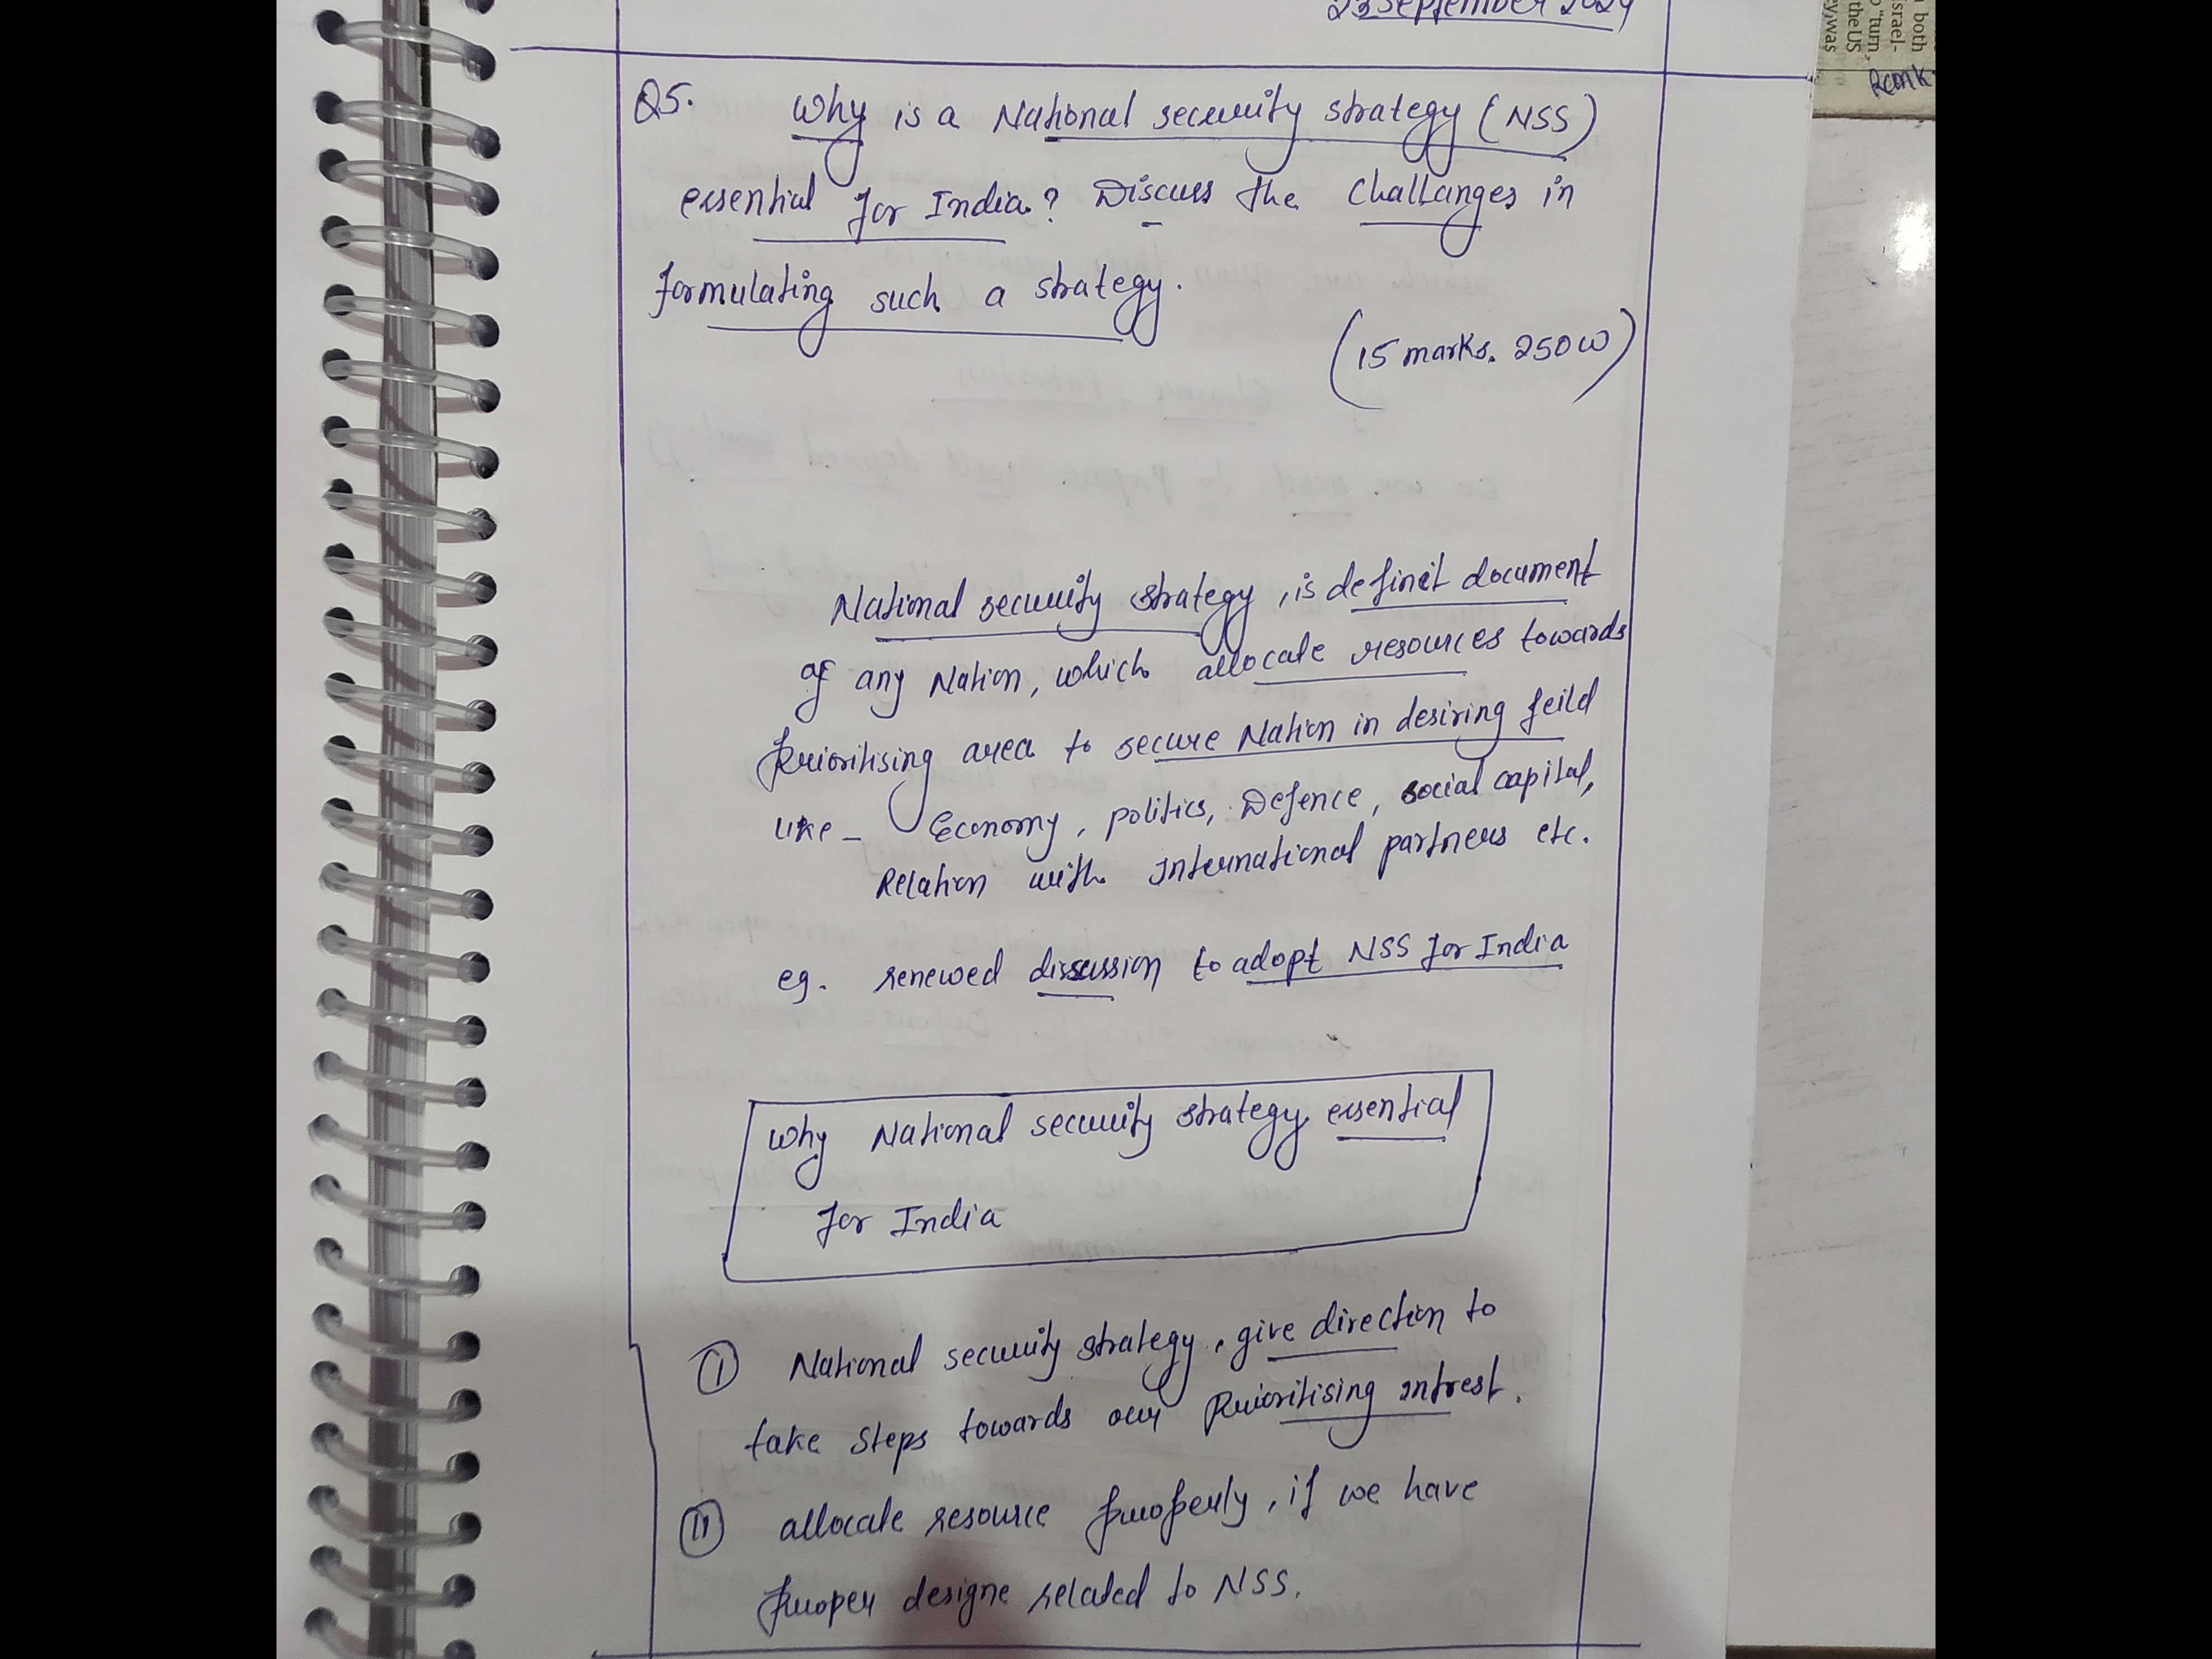 23 September 2024
both
israel-
"turn,
the US
ey, was
Remk
Q5. Why is a National security strategy (NSS)
essential for India? Discuss the Challanges in
formulating such a strategy.
(15 marks. 250W)
National security strategy, is definit document
of any Nation, which allocate resources towards
prioritising area to secure Nation in desiring feild
like - Economy, politics, Defence, social capital,
Relation with International partners etc.
eg. renewed disscussion to adopt NSS for India
Why National security strategy essential
for India
(I) National security strategy, give direction to
take steps towards our Prioritising intrest.
(II) allocate resource properly, if we have
proper designe related to NSS.